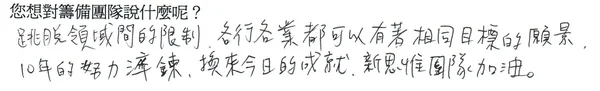 您想對籌備團隊說什麼呢？
跳脫領域間的限制，各行各業都可以有著相同目標的願景，
10年的努力淬鍊，換來今日的成就，新思惟團隊加油。